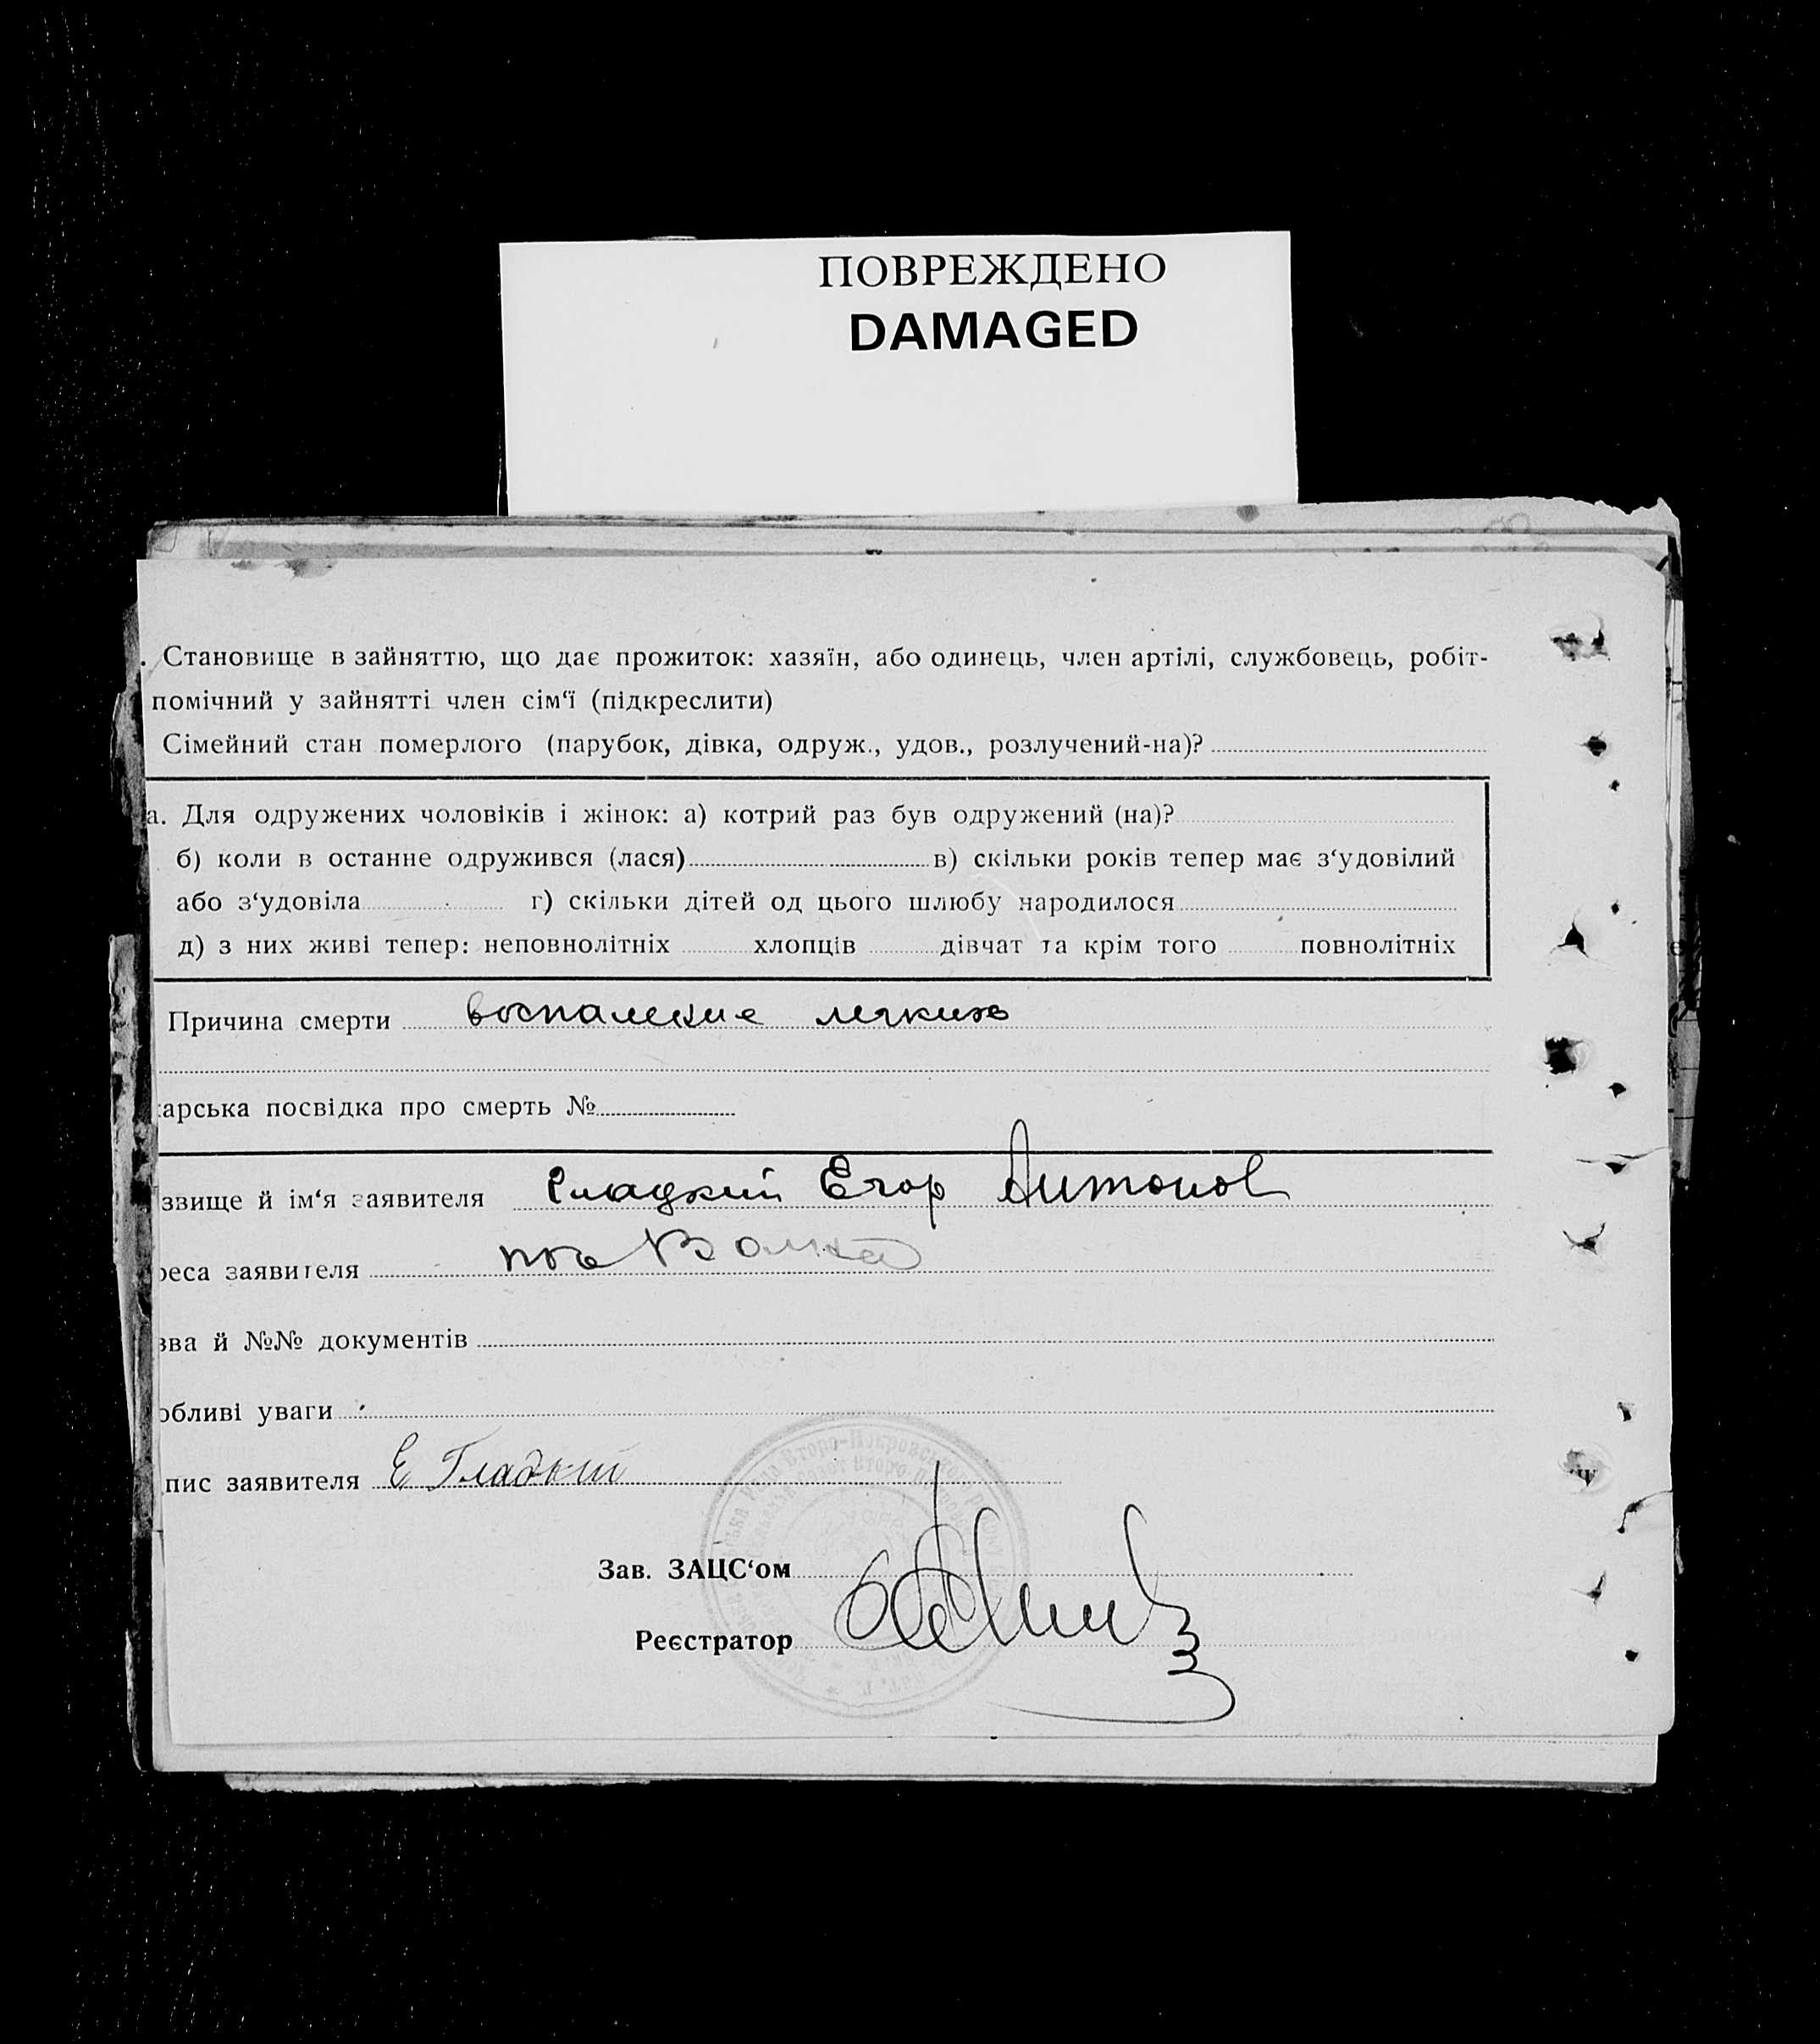 ПОВРЕЖДЕНО
DAMAGED
. Становище в зайняттю, що дає прожиток: хазяїн, або одинець, член артілі, службовець, робіт-
помічний у зайнятті член сім‘ї (підкреслити)
Сімейний стан померлого (парубок, дівка, одруж., удов., розлучений-на)?
а. Для одружених чоловіків і жінок: а) котрий раз був одружений (на)?
б) коли в останне одружився (лася) в) скільки років тепер має з‘удовілий
або з‘удовіла г) скільки дітей од цього шлюбу народилося
д) з них живі тепер: неповнолітніх хлопців дівчат та крім того повнолітніх
Причина смерти воспаление легких
карська посвідка про смерть №
звище й ім‘я заявителя Гладкий Егор Антонов
реса заявителя пос
зва й №№ документів
обливі уваги
пис заявителя Е Гладкий
Зав. ЗАЦС‘ом
Реєстратор